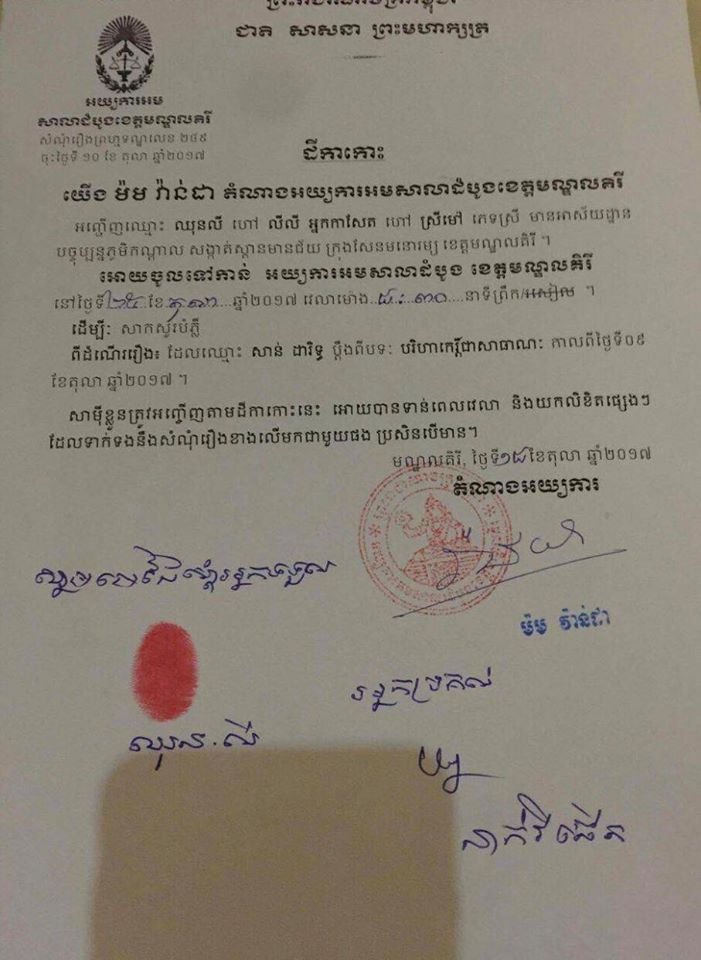 ព្រះរាជាណាចក្រកម្ពុជា
ជាតិ សាសនា ព្រះមហាក្សត្រ
អយ្យការអម
សាលាដំបូងខេត្តមណ្ឌលគិរី
សំណុំរឿងព្រហ្មទណ្ឌលេខ ២៤៩
ចុះថ្ងៃទី ១០ ខែ តុលា ឆ្នាំ២០១៧
ដីកាកោះ
យើង ម៉ម វ៉ាន់ដា តំណាងអយ្យការអមសាលាដំបូងខេត្តមណ្ឌលគិរី
អញ្ជើញឈ្មោះ ឈុនលី ហៅ លីលី អ្នកកាសែត ហៅ ស្រីមៅ ភេទស្រី មានអាស័យដ្ឋាន
បច្ចុប្បន្នភូមិកណ្តាល សង្កាត់ស្ពានមានជ័យ ក្រុងសែនមនោរម្យ ខេត្តមណ្ឌលគិរី ។
អោយចូលទៅកាន់ អយ្យការអមសាលាដំបូង ខេត្តមណ្ឌលគិរី
នៅថ្ងៃទី២៥ ខែ តុលា ឆ្នាំ២០១៧ វេលាម៉ោង ៨:៣០ នាទីព្រឹក/រសៀល ។
ដើម្បីៈ សាកសួរបំភ្លឺ
ពីដំណើររឿង៖ ដែលឈ្មោះ សាន់ ដារិទ្ធ ប្តឹងពីបទៈ បរិហាកេរ្តិ៍ជាសាធាណៈ កាលពីថ្ងៃទី០៩
ខែតុលា ឆ្នាំ២០១៧ ។
សាម៉ីខ្លួនត្រូវអញ្ជើញតាមដីកាកោះនេះ អោយបានទាន់ពេលវេលា និងយកលិខិតផ្សេងៗ
ដែលទាក់ទងនឹងសំណុំរឿងខាងលើមកជាមួយផង ប្រសិនបើមាន។
មណ្ឌលគិរី, ថ្ងៃទី១៨ខែតុលា ឆ្នាំ២០១៧
តំណាងអយ្យការ
ម៉ម វ៉ាន់ដា
ស្នាមមេដៃស្តាំអ្នកទទួល
អ្នកប្រគល់
ឈុន លី